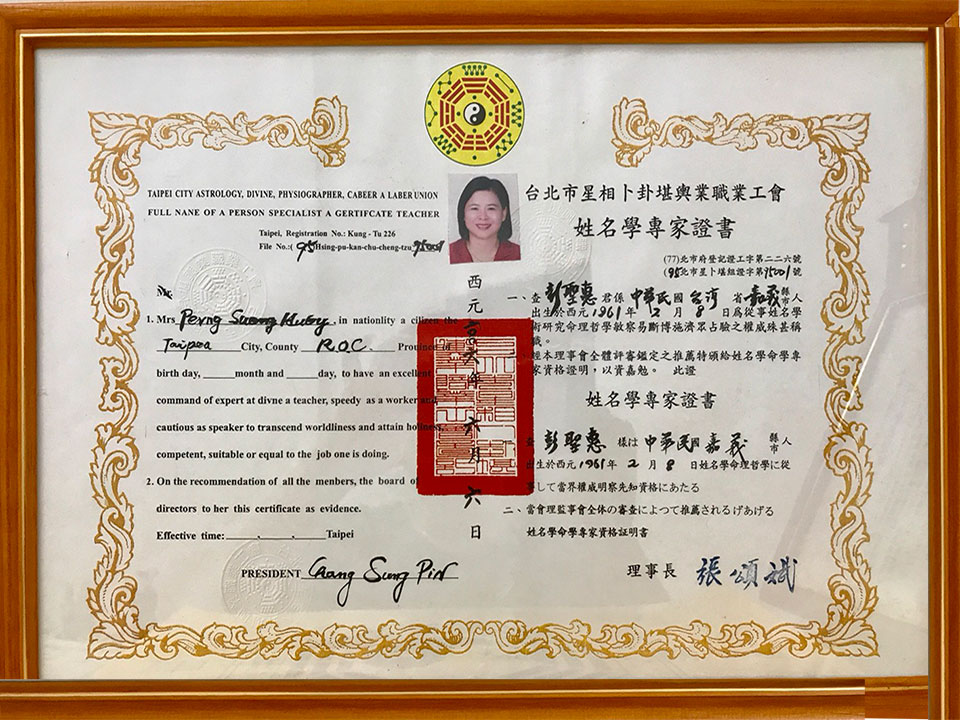 TAIPEI CITY ASTROLOGY, DIVINE, PHYSIOGRAPHER, CABEER A LABER UNION
FULL NANE OF A PERSON SPECIALIST A GERTIFCATE TEACHER
Taipei, Registration No.: Kung - Tu 226
File No.:( 95)Hsing-pu-kan-chu-cheng-tzu 95001
Mr.
1. Mrs Perng Sueng Huey, in nationlity a cilizen the
Taipea City, County R.O.C. Province of
birth day, ______month and ______day, to have an excellent
command of expert at divne a teacher, speedy as a worker and
cautious as speaker to transcend worldliness and attain holiness,
competent, suitable or equal to the job one is doing.
2. On the recommendation of all the menbers, the board of
directors to her this certificate as evidence.
Effective time:____.____.____Taipei
PRESIDENT Chang Sung Pin
西元 年六月六日
台北市星相卜卦堪輿業職業工會
姓名學專家證書
(77)北市府登記證工字第二二六號
(95)北市星卜堪組證字第95001號
一、查彭聖惠君係中華民國台灣省嘉義縣市人
出生於西元1961年2月8日為從事姓名學
術研究命理哲學敏察易斷博施濟眾占驗之權威殊甚稱
職。
經本理事會全體評審鑑定之推薦特頒給姓名學命學專
家資格證明，以資嘉勉。 此證
姓名學專家證書
查彭聖惠樣は中華民國嘉義縣市人
出生於西元1961年2月8日姓名學命理哲學に從
事して當界權威明察先知資格にあたる
二、當會理監事會全体の審查によつて推薦されるげあげる
姓名學命學專家資格証明書
理事長 張頌斌